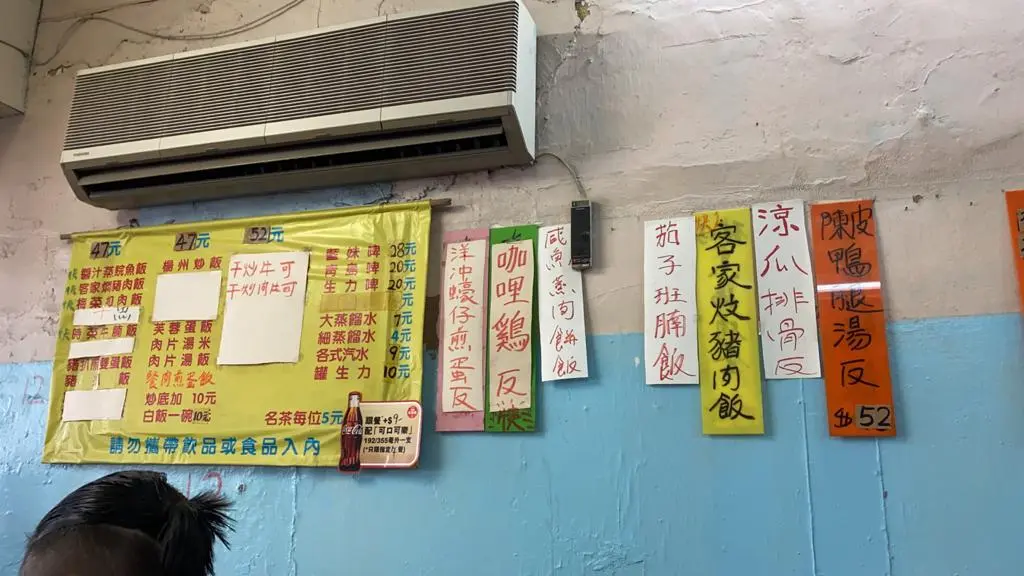 47元
醬汁蒸鯇魚飯
客家燜豬肉飯
梅菜扣肉飯
飯
豬扒煎雙蛋飯
豬 飯
47元
楊州炒飯
芙蓉蛋飯
肉片湯米
肉片湯飯
餐肉煎蛋飯
炒底加 10元
白飯一碗10元
52元
干炒牛可
干炒肉片可
藍妹啤 28元
青島啤 20元
生力啤 20元
元
大蒸餾水 7元
細蒸餾水 4元
各式汽水 9元
罐生力 10元
名茶每位5元
請勿攜帶飲品或食品入內
Coca-Cola
跟餐+$9
配「可口可樂」
192/355毫升一支
洋沖蠔仔煎蛋反
咖哩鷄反
快
咸魚蒸肉餅飯
茄子班腩飯
客家炆豬肉飯
涼瓜排骨反
陳皮鴨腿湯反
$52